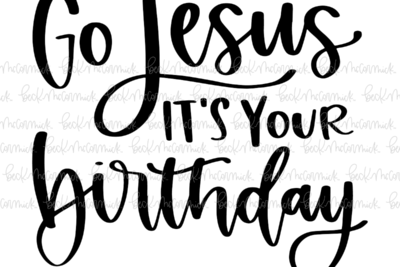 Go Jesus
IT'S YOUR
birthday